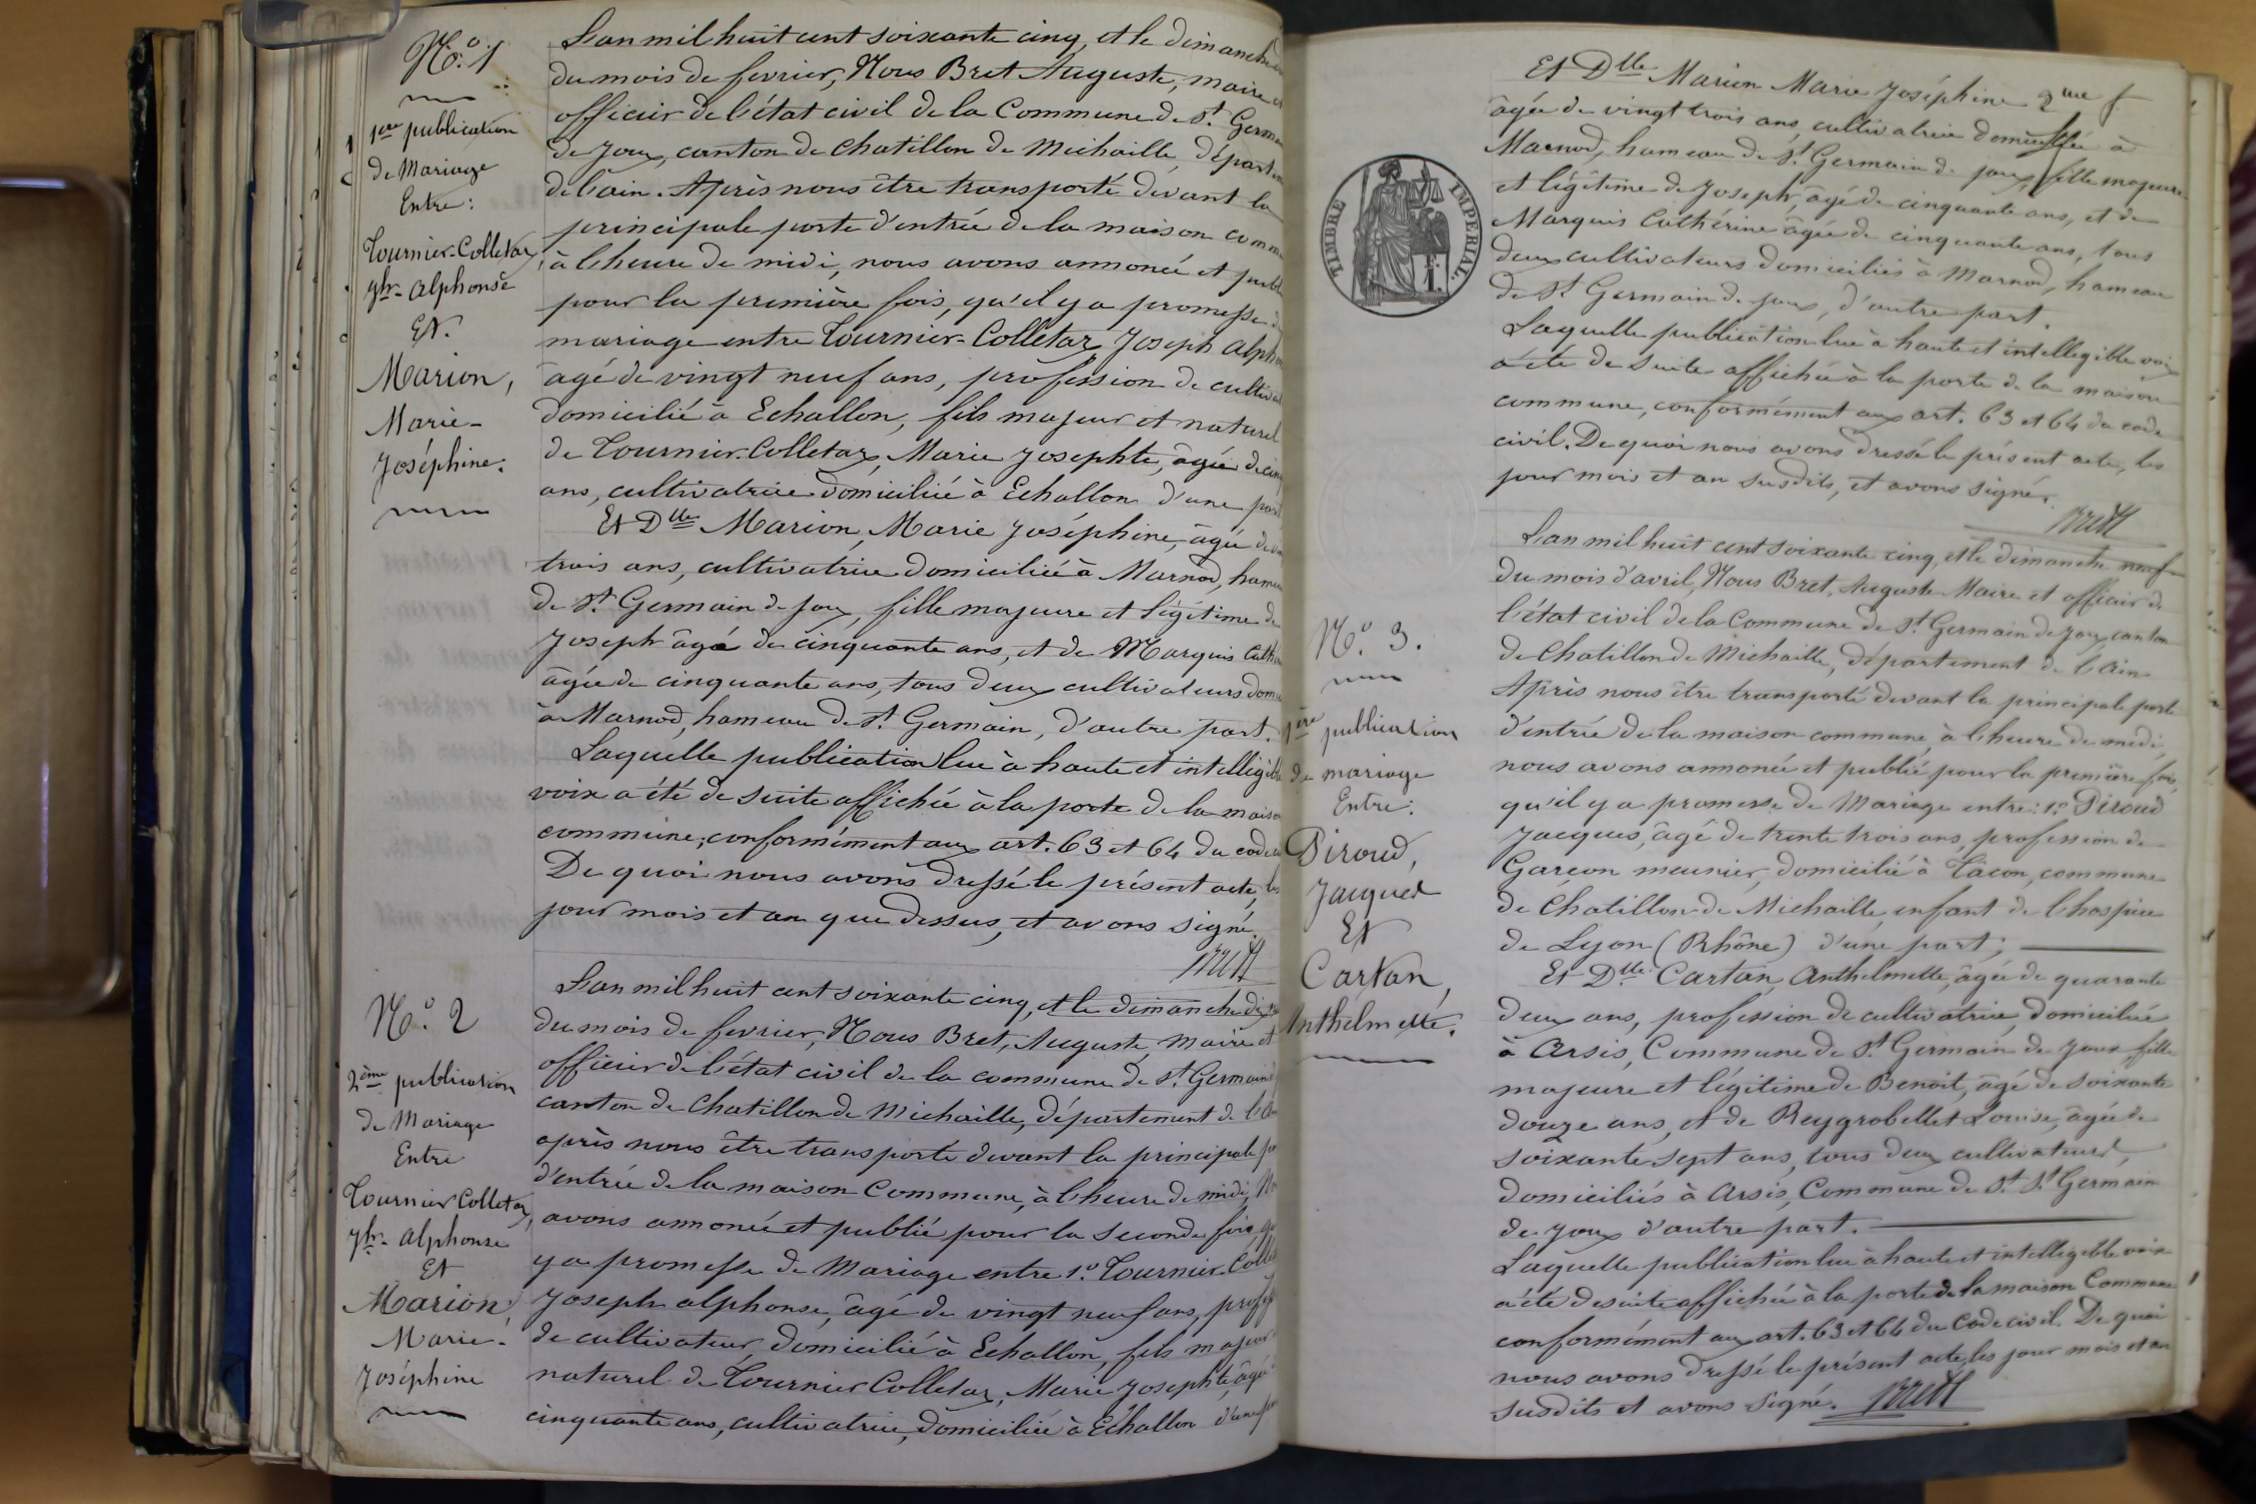 N.° 1
1ere publication
de Mariage
Entre:
Tournier-Colletaz,
Jph- Alphonse
Et.
Marion,
Marie-
Joséphine.
L'an mil huit cent soixante cinq, et le dimanche
du mois de fevrier, Nous Bret Auguste, maire
officier de l'état civil de la Commune de St. Germ
de Joux, canton de Chatillon de Michaille, départ
de l'ain. Après nous être transporté devant la
principale porte d'entrée de la maison comm
à l'heure de midi, nous avons annoncé et publ
pour la première fois, qu'il y a promesse d
mariage entre Tournier-Colletaz Joseph Alph
âgé de vingt neuf ans, profession de cultiv
domicilié à Echallon, fils majeur et naturel
de Tournier-Colletaz, Marie Josephte, âgée de cinq
ans, cultivatrice domiciliée à Echallon d'une part
Et Dlle Marion, Marie Joséphine, âgée de
trois ans, cultivatrice domiciliée à Marnod, hame
de St. Germain de Joux, fille majeure et légitime de
Joseph âgé de cinquante ans, et de Marquis Cath
âgée de cinquante ans, tous deux cultivateurs dom
à Marnod, hameau de St. Germain, d'autre part.
Laquelle publication lue à haute et intelligible
voix a été de suite affichée à la porte de la maison
commune, conformément aux art. 63 et 64 du code
De quoi nous avons dressé le présent acte, les
jour mois et an que dessus, et avons signé.
Bret
N.° 2
2ème publication
de Mariage
Entre
Tournier Colletaz,
Jph- Alphonse
Et
Marion,
Marie-
Joséphine
L'an mil huit cent soixante cinq, et le dimanche
du mois de fevrier, Nous Bret, Auguste, maire et
officier de l'état civil de la commune de St. Germain
canton de Chatillon de Michaille, département de l'Ain
après nous être transporté devant la principale po
d'entrée de la maison Commune, à l'heure de midi, No
avons annoncé et publié pour la seconde fois, qu
y a promesse de Mariage entre 1.° Tournier-Colle
Joseph alphonse, âgé de vingt neuf ans, profe
de cultivateur, domicilié à Echallon, fils majeur
naturel de Tournier Colletaz, Marie Josephte, âgée
cinquante ans, cultivatrice, domiciliée à Echallon d'une part
TIMBRE IMPÉRIAL.
Et Dlle Marion Marie Joséphine 2me f
âgée de vingt trois ans, cultivatrice domiciliée à
Marnod, hameau de St. Germain de Joux, fille majeure
et légitime de Joseph, âgé de cinquante ans, et de
Marquis Cathérine âgée de cinquante ans, tous
deux cultivateurs domiciliés à Marnod, hameau
de St Germain de Joux, d'autre part.
Laquelle publication lue à haute et intellegible voix
a été de suite affichée à la porte de la maison
commune, conformément aux art. 63 et 64 du code
civil. De quoi nous avons dressé le présent acte, les
jour mois et an susdits, et avons signé.
Bret
N.° 3.
1ère publication
de mariage
Entre:
Piroud,
Jacques
Et
Cartan,
Anthelmette.
L'an mil huit cent soixante cinq, et le dimanche neuf
du mois d'avril, Nous Bret, Auguste Maire et officier de
l'état civil de la Commune de St. Germain de Joux, canton
de Chatillon de Michaille, département de l'Ain
Après nous être transporté devant la principale porte
d'entrée de la maison commune, à l'heure de midi,
nous avons annoncé et publié pour la première fois,
qu'il y a promesse de Mariage entre: 1.° Piroud
Jacques, âgé de trente trois ans, profession de
Garçon meunier, domicilié à Tacon, commune
de Chatillon de Michaille, enfant de l'hospice
de Lyon (Rhône) d'une part;
Et Dlle Cartan, Anthelmette, âgée de quarante
deux ans, profession de cultivatrice, domiciliée
à Arsis, Commune de St Germain de Joux fille
majeure et légitime de Benoit, âgé de soixante
douze ans, et de Reygrobellet Louise, âgée de
soixante sept ans, tous deux cultivateurs,
domiciliés à Arsis, Commune de St. St. Germain
de Joux d'autre part.
Laquelle publication lue à haute et intelligible voix
a été de suite affichée à la porte de la maison Commune
conformément aux art. 63 et 64 du Code civil. De quoi
nous avons dressé le présent acte, les jour mois et an
susdits et avons signé. Bret